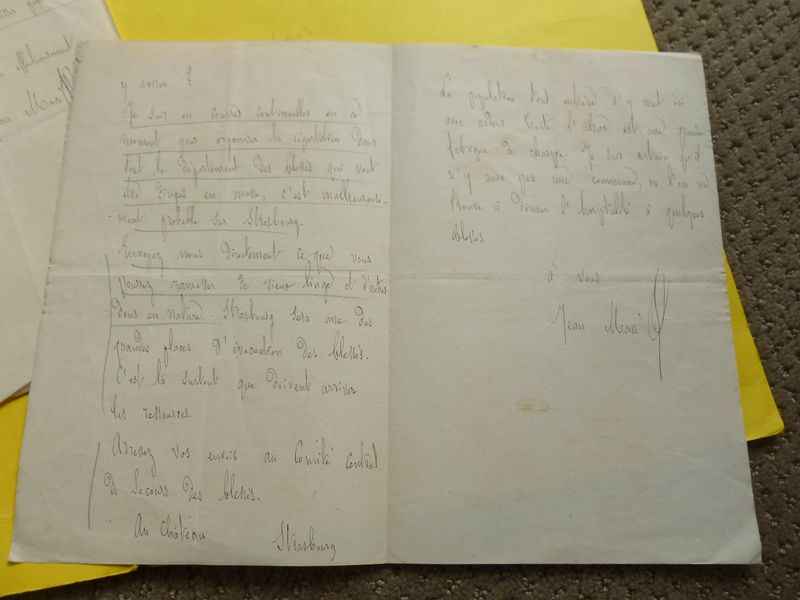 y aviser ?
Je suis en courses continuelles en ce
moment pour organiser la répartition dans
tout le département des blessés qui vont
être dirigés en masse, c'est malheureuse-
ment probable sur Strasbourg.
Envoyez nous directement ce que vous
pourrez ramasser de vieux linge et d'autres
dons en nature. Strasbourg sera une des
grandes places d'évacuation des blessés.
C'est là surtout que doivent arriver
les ressources.
Adressez vos envois au Comité central
de secours des blessés.
Au château Strasbourg
La population tout entière s'y met ici
avec ardeur. Toute l'alsace est une grande
fabrique de charpie. Je suis certain qu'il
n'y aura pas une commune, où l'on ne
trouve à donner l'hospitalité à quelques
blessés
à vous
Jean Macé